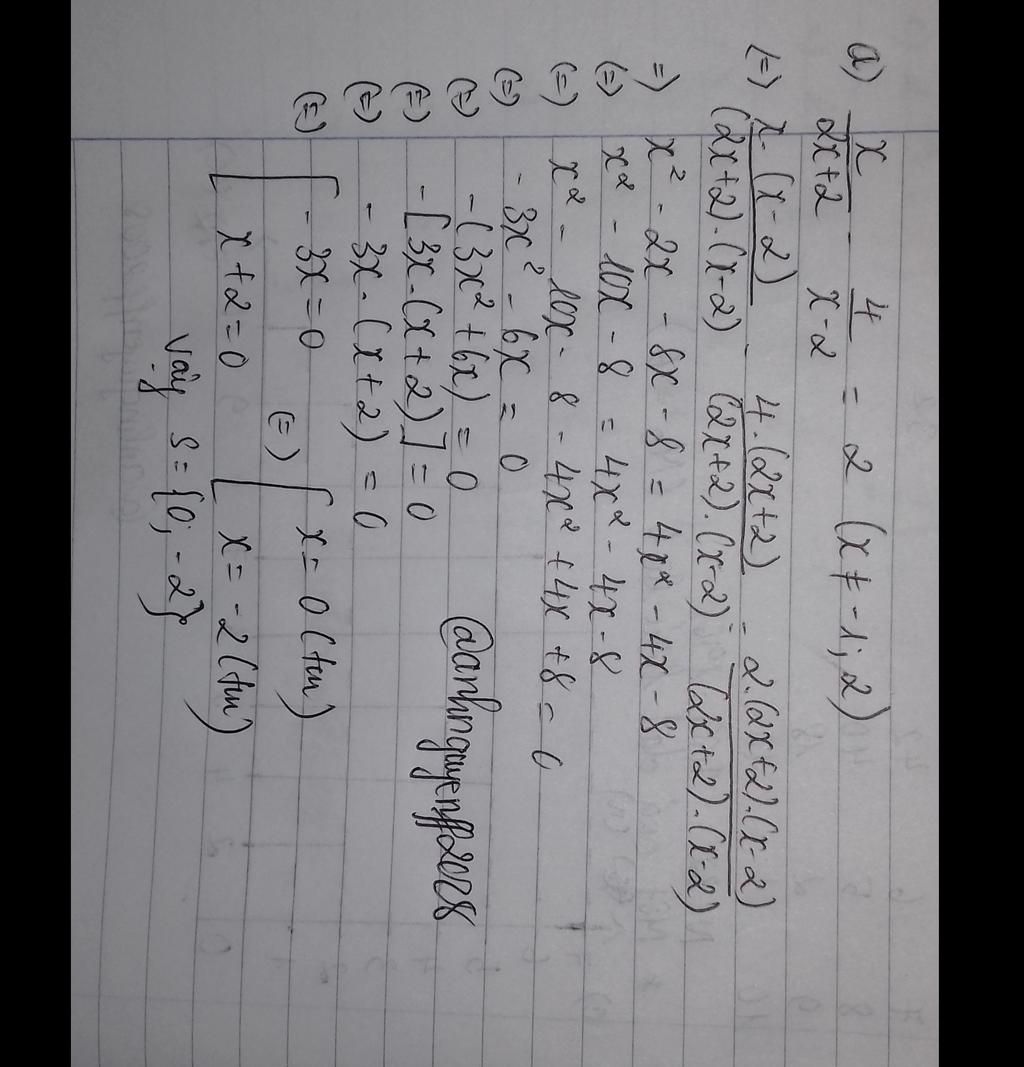 a) x/(2x+2) - 4/(x-2) = 2 (x ≠ -1; 2)
(=) x.(x-2)/(2x+2).(x-2) - 4.(2x+2)/(2x+2).(x-2) = 2.(2x+2).(x-2)/(2x+2).(x-2)
=) x² - 2x - 8x - 8 = 4x² - 4x - 8
(=) x² - 10x - 8 = 4x² - 4x - 8
(=) x² - 10x - 8 - 4x² + 4x + 8 = 0
(=) - 3x² - 6x = 0
(=) -(3x² + 6x) = 0
(=) -[3x.(x+2)] = 0
(=) - 3x.(x+2) = 0
(=) [ - 3x = 0 (=) [ x = 0 (tm)
x + 2 = 0 x = - 2 (tm)
Vậy S = {0; - 2}
@anhnguyenff2028